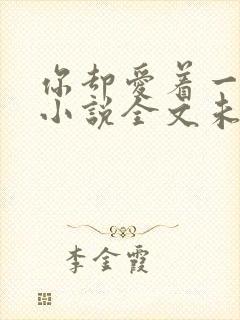 你却爱着一
小说全文未
李金霞